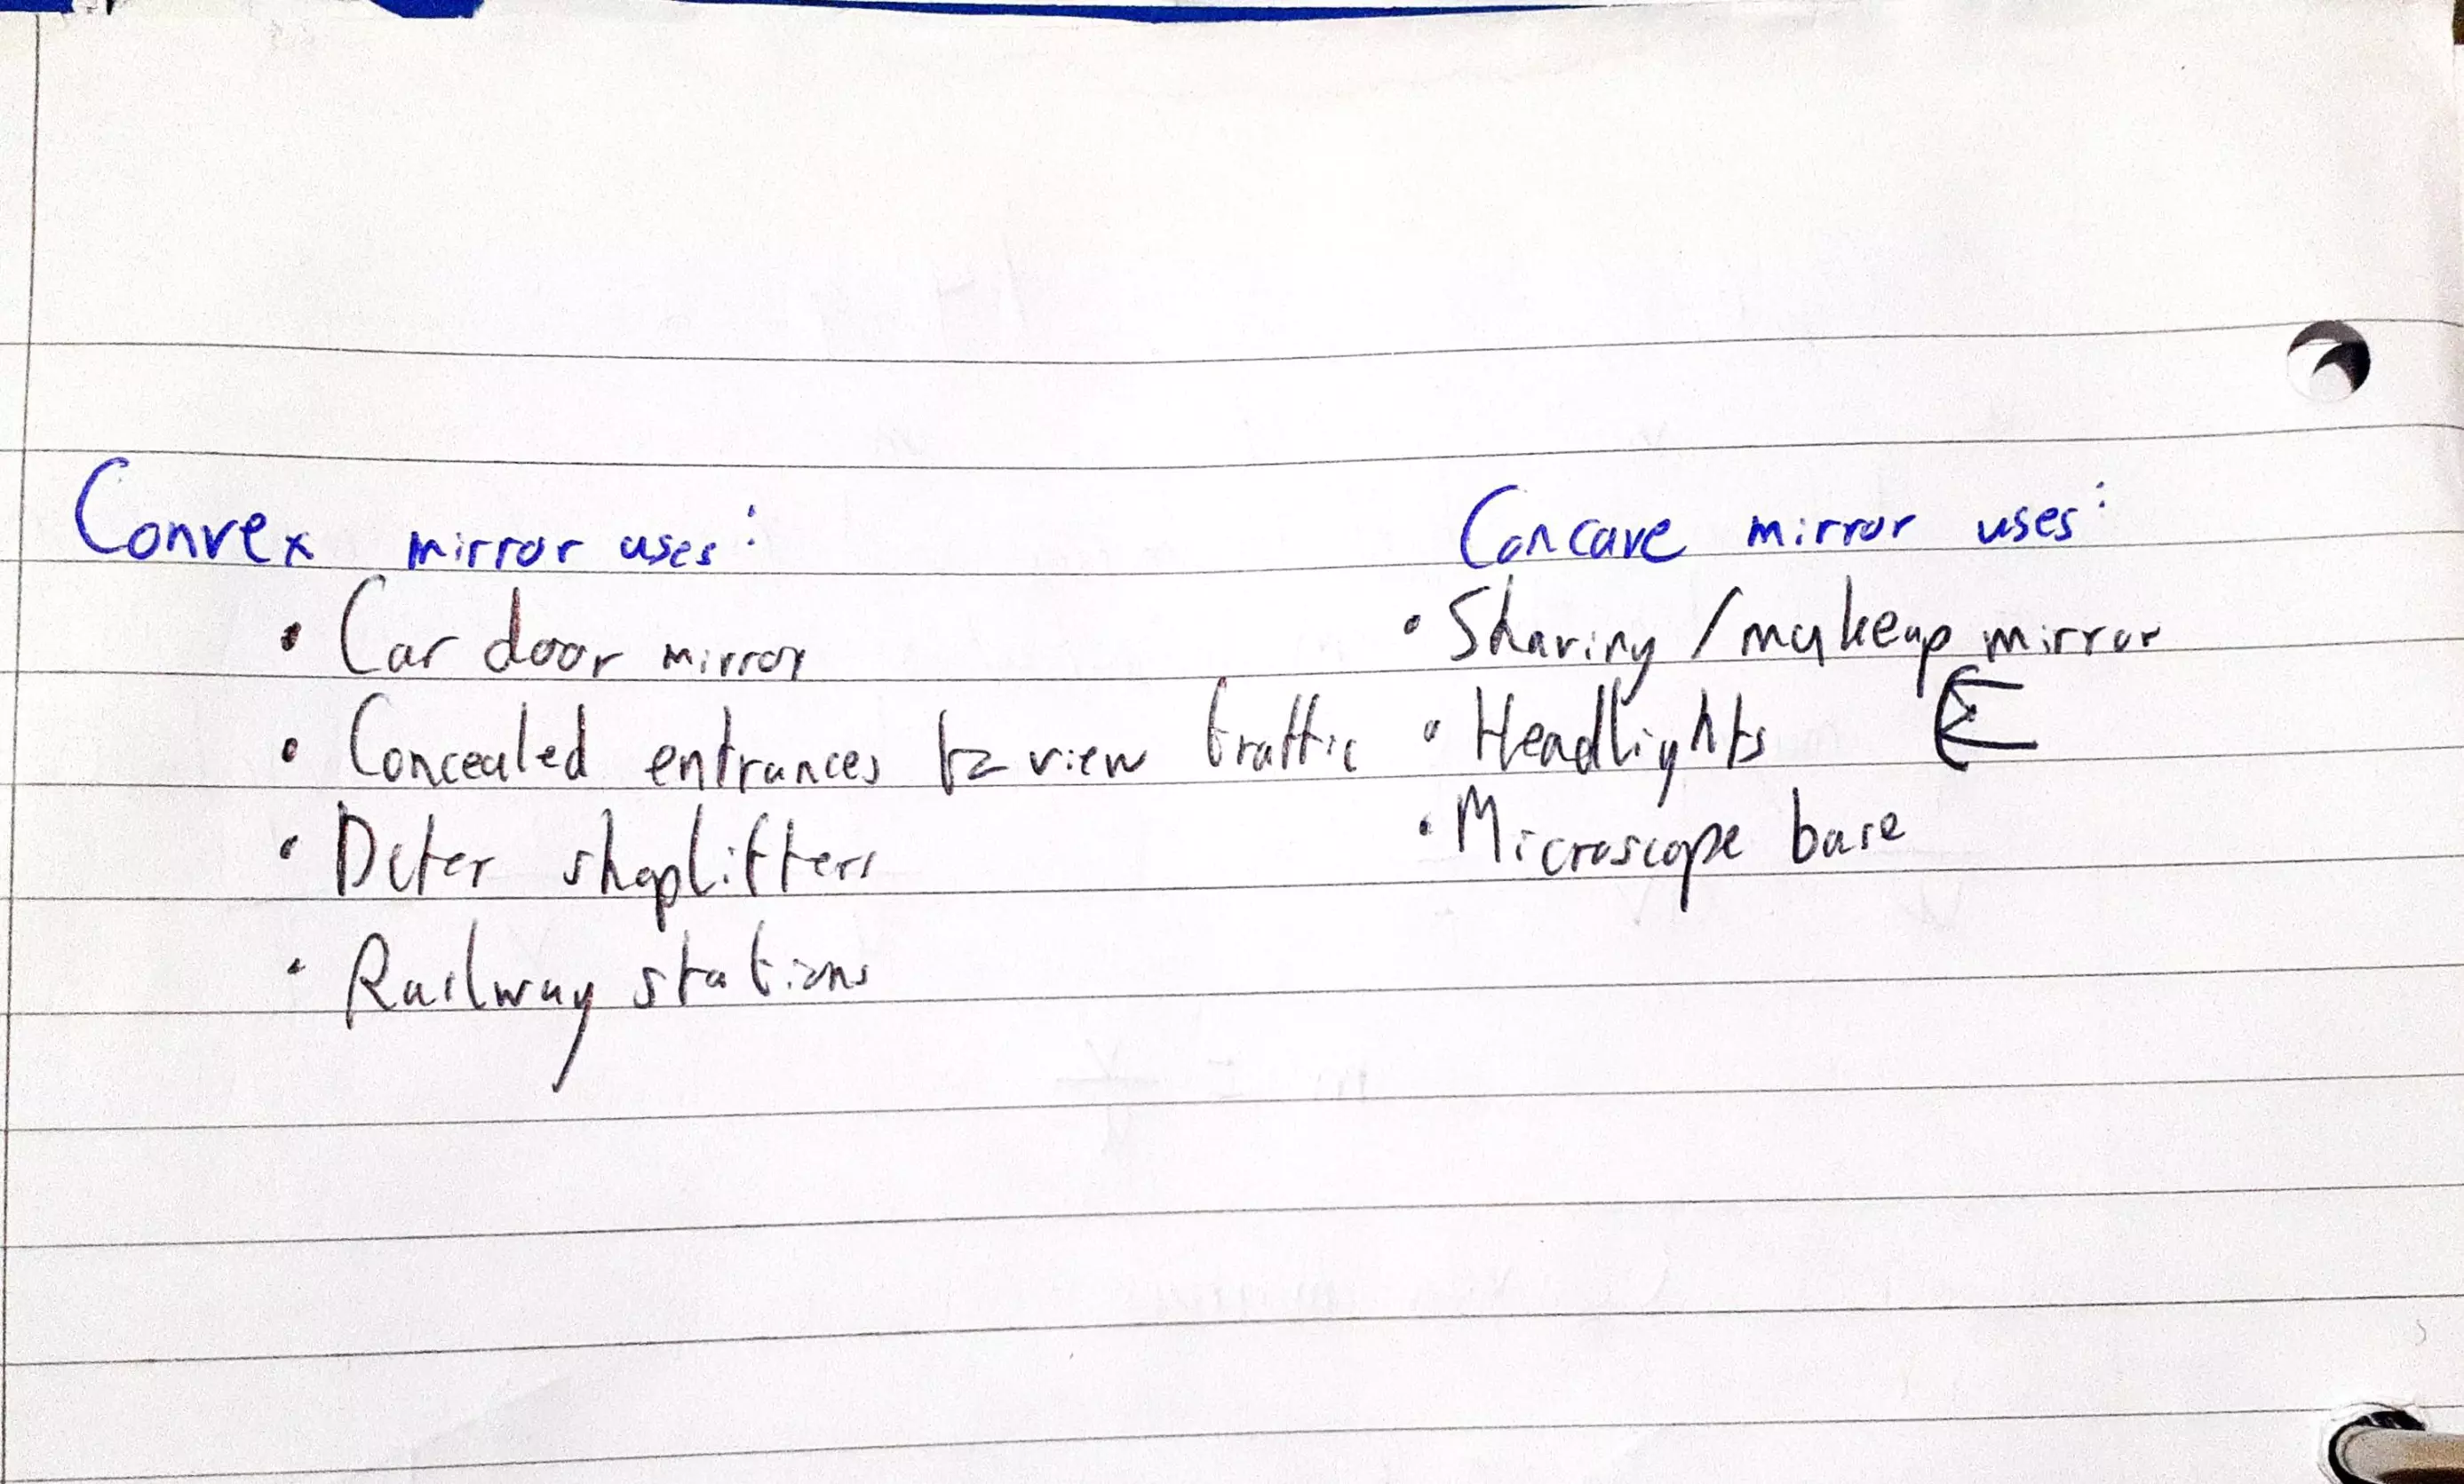 Convex mirror uses:
• Car door mirror
• Concealed entrances to view traffic
• Deter shoplifters
• Railway stations
Concave mirror uses:
• Shaving / makeup mirror
• Headlights
• Microscope base